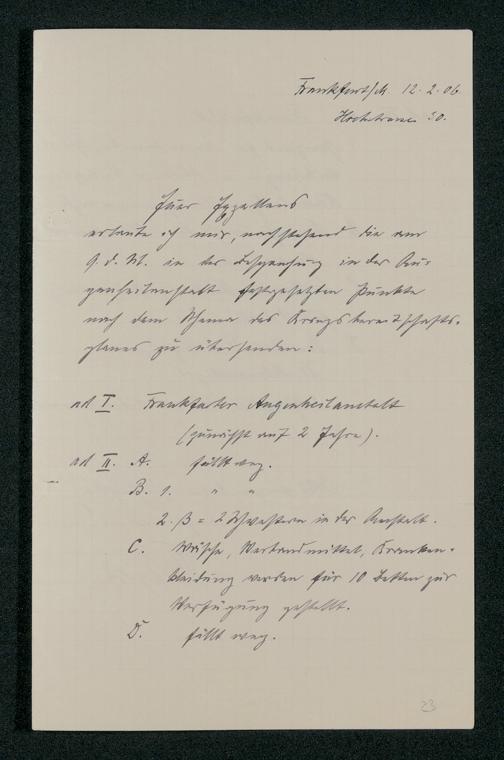 Frankfurt/M. 12. 2. 06
Hochstrasse 30.
Euer Exzellenz
erlaube ich mir, nachstehend die am
9. d. M. in der Besprechung in der Au-
genheilanstalt festgesetzten Punkte
nach dem Schema des Kriegsbereitschafts-
planes zu übersenden:
ad I. Frankfurter Augenheilanstalt
(zunächst auf 2 Jahre).
ad II. A. fällt weg.
B. 1. " "
2. B = 2 Schwestern in der Anstalt.
C. Wäsche, Verbandmittel, Kranken-
kleidung werden für 10 Betten zur
Verfügung gestellt.
D. fällt weg.
23